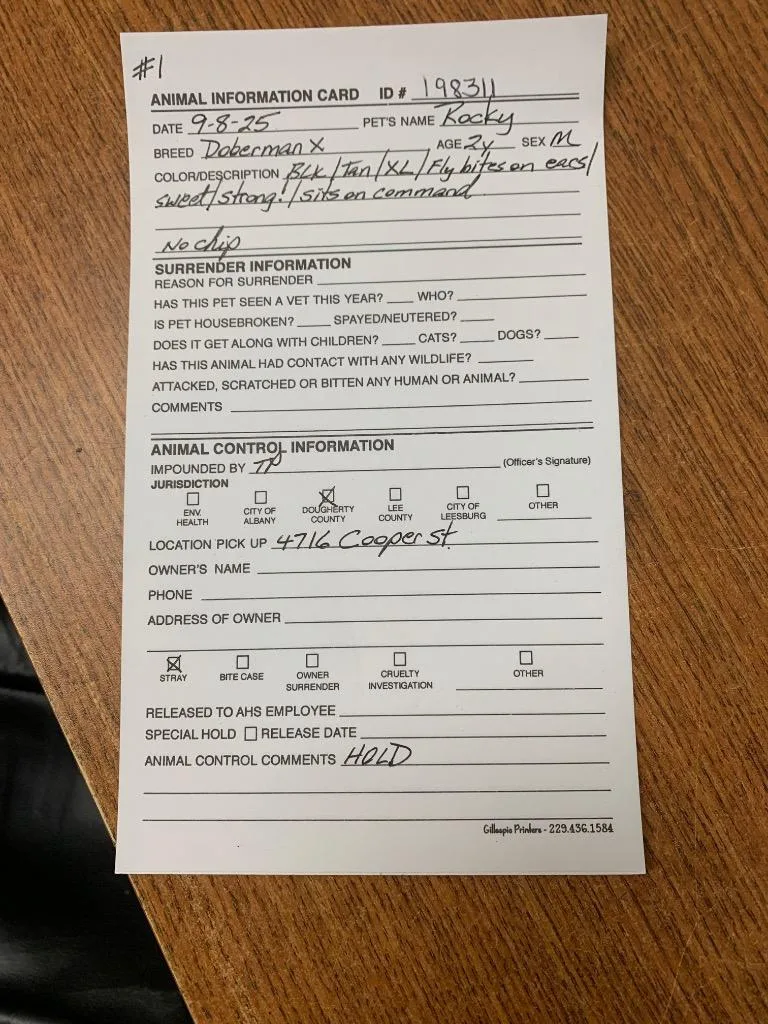 #1
ANIMAL INFORMATION CARD ID # 198311
DATE 9-8-25 PET'S NAME Rocky
BREED Doberman X AGE 2y SEX M
COLOR/DESCRIPTION BLK/Tan/XL/Fly bites on ears/
sweet/strong!/sits on command
No chip
SURRENDER INFORMATION
REASON FOR SURRENDER
HAS THIS PET SEEN A VET THIS YEAR? WHO?
IS PET HOUSEBROKEN? SPAYED/NEUTERED?
DOES IT GET ALONG WITH CHILDREN? CATS? DOGS?
HAS THIS ANIMAL HAD CONTACT WITH ANY WILDLIFE?
ATTACKED, SCRATCHED OR BITTEN ANY HUMAN OR ANIMAL?
COMMENTS
ANIMAL CONTROL INFORMATION
IMPOUNDED BY TP (Officer's Signature)
JURISDICTION
ENV. HEALTH CITY OF ALBANY DOUGHERTY COUNTY LEE COUNTY CITY OF LEESBURG OTHER
LOCATION PICK UP 4716 Cooper St.
OWNER'S NAME
PHONE
ADDRESS OF OWNER
STRAY BITE CASE OWNER SURRENDER CRUELTY INVESTIGATION OTHER
RELEASED TO AHS EMPLOYEE
SPECIAL HOLD RELEASE DATE
ANIMAL CONTROL COMMENTS HOLD
Gillespie Printers - 229.436.1584